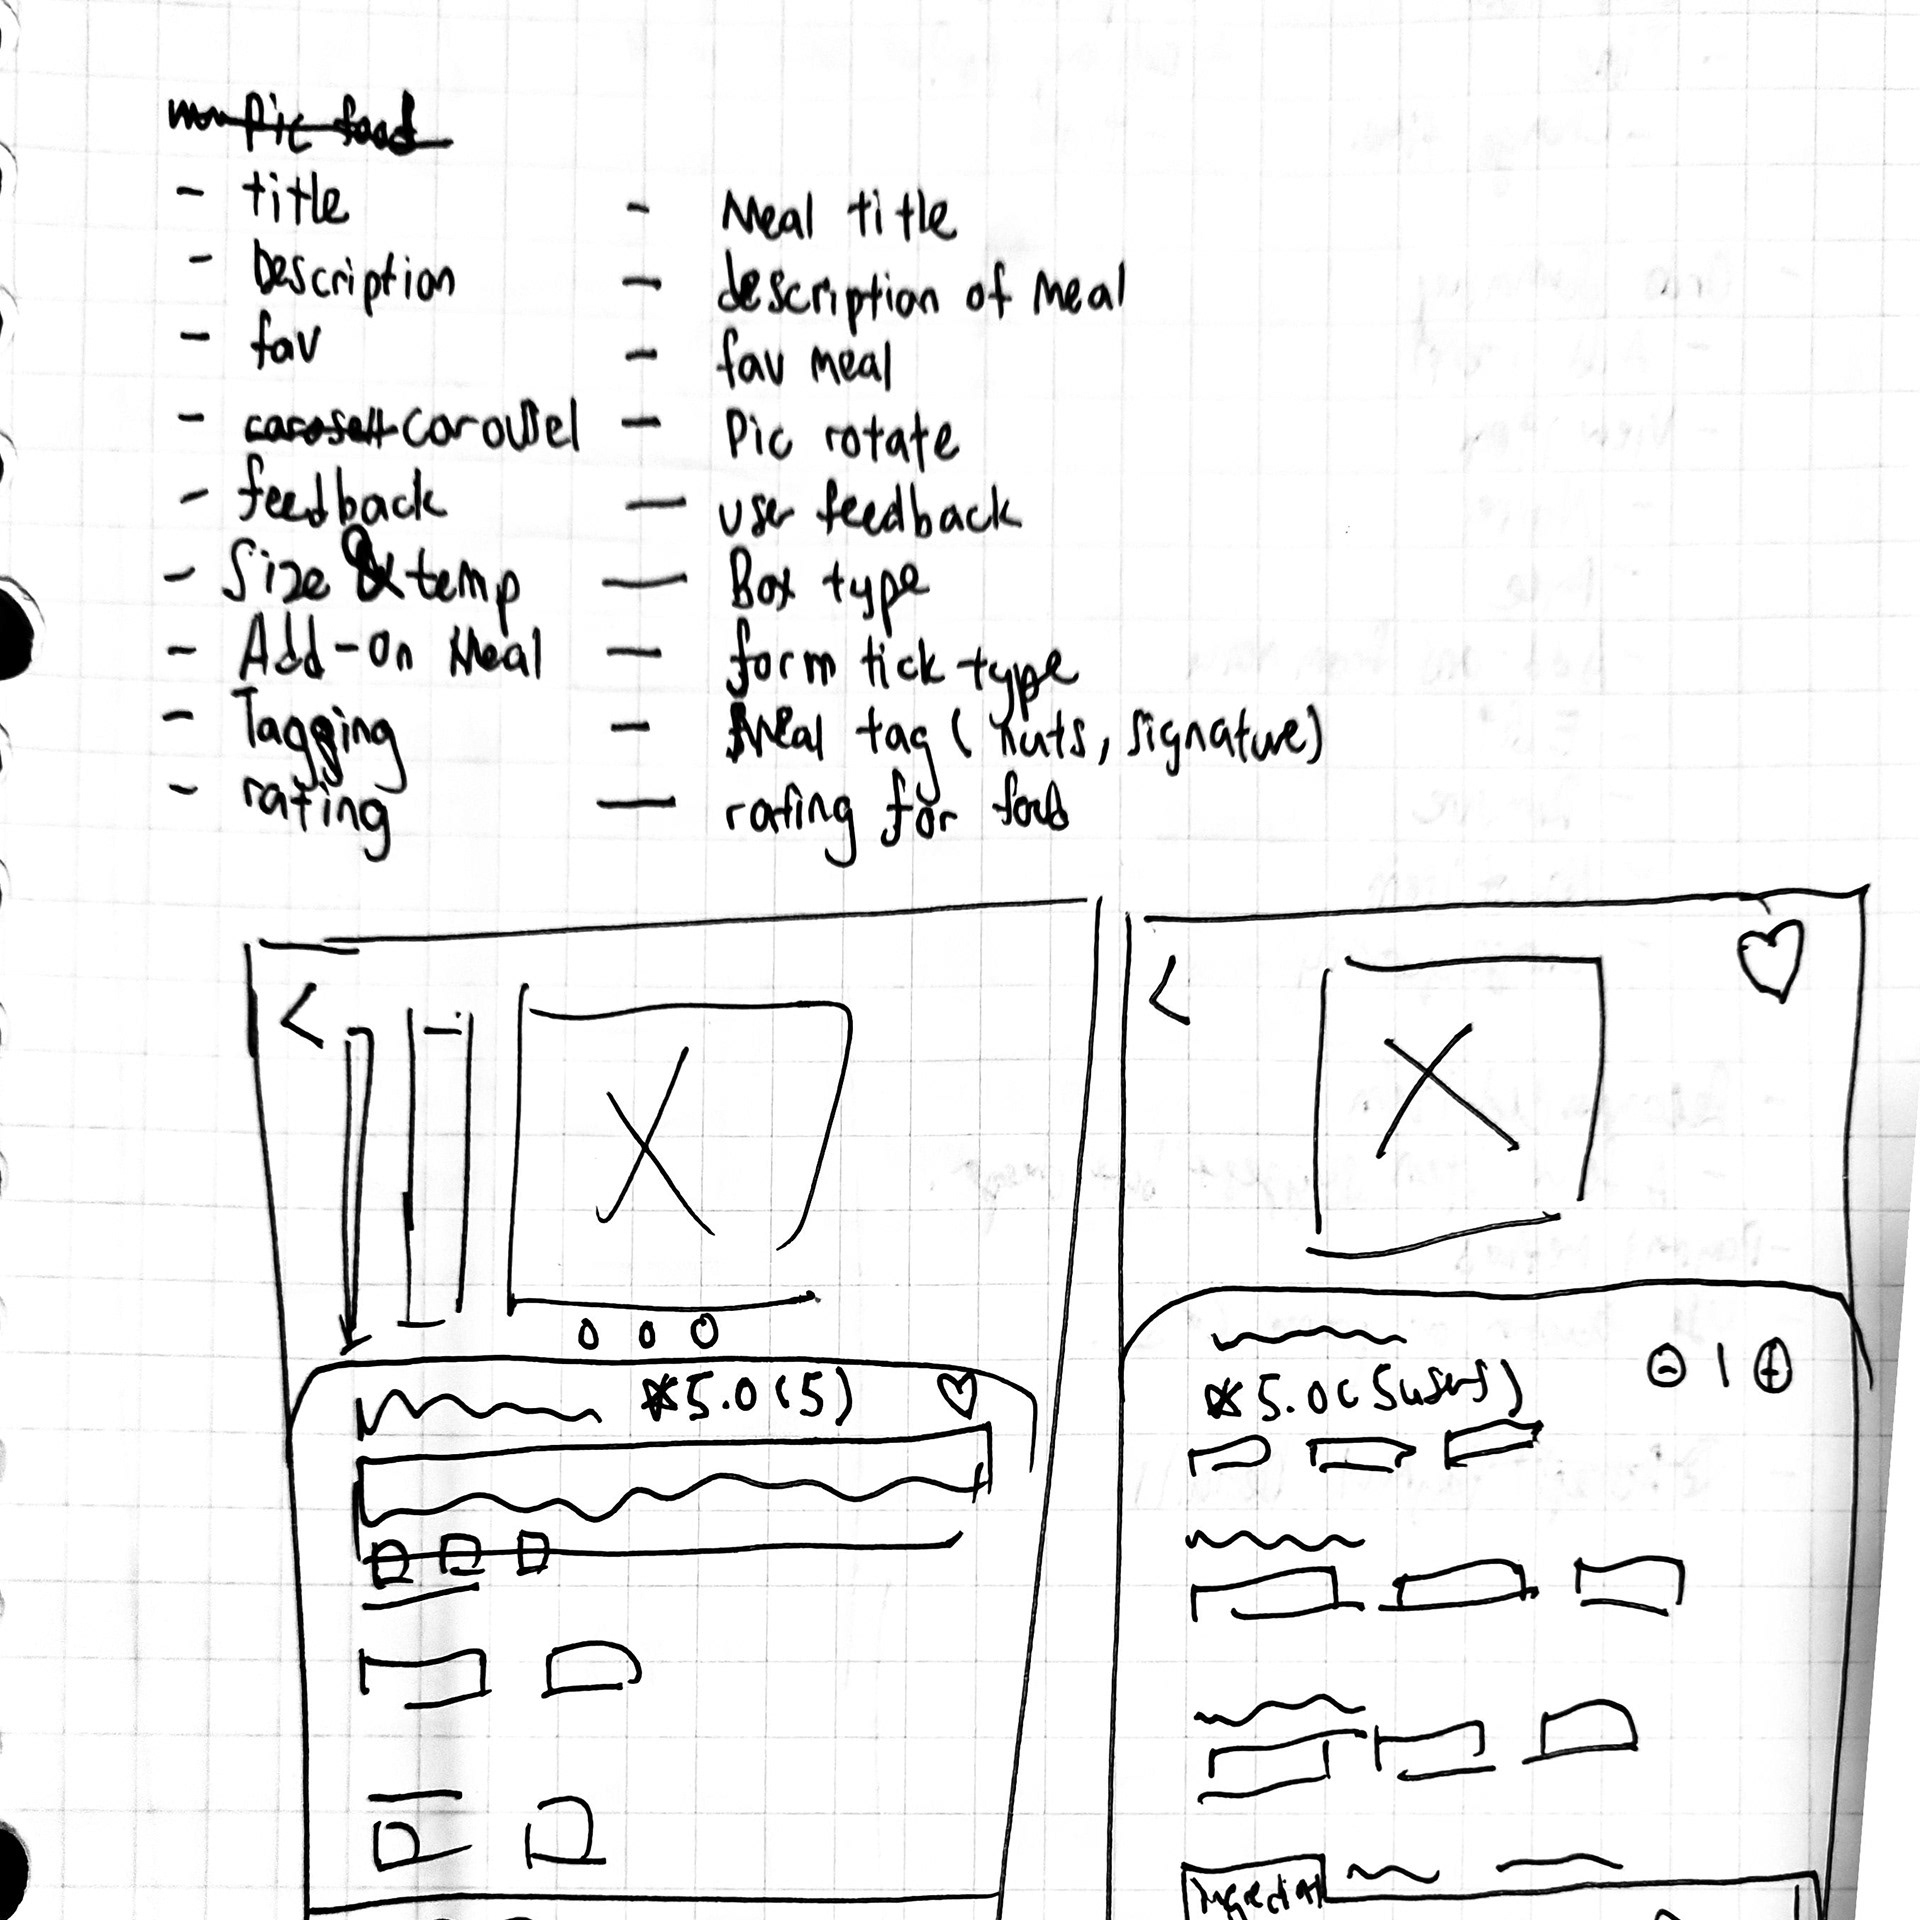 Pic food
- title - Meal title
- Description - description of meal
- fav - fav meal
- carousel - Pic rotate
- feedback - user feedback
- Size & temp - Box type
- Add-on Meal - form tick type
- Tagging - Meal tag (nuts, signature)
- rating - rating for food
<
<
5.0 (5)
5.0 (5 users)
- 1 +